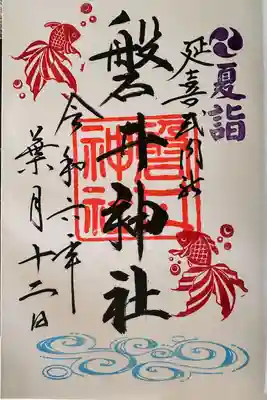 夏詣
延喜式内社
磐井神社
磐井神社
令和六年
葉月十二日